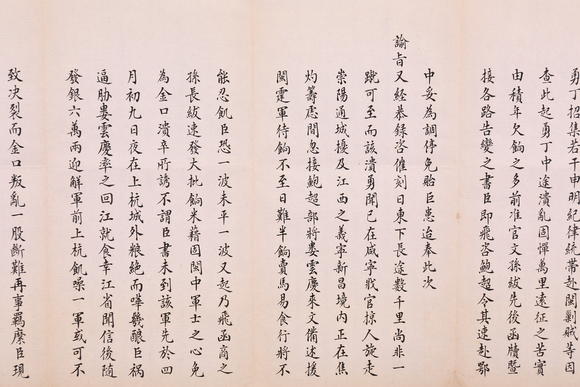 勇丁招集若干申明紀律統帶赴閩剿賊等因
查此起勇丁中途潰亂固憚萬里遠征之苦實
由積年欠餉之多前准官文孫紱先後函牘暨
接各路告變之書臣即飛咨鮑超令其速赴鄂
中妥為調停免貽巨患迨奉此次
諭旨又經恭錄咨催刻日東下長途數千里尚非一
蹴可至而該潰勇聞已在咸寧戕官掠人旋走
崇陽通城擾及江西之義寧新昌境內正在焦
灼籌慮間忽接鮑超部將婁雲慶來文備述援
閩霆軍待餉不至日難半餉賣馬易食行將不
能忍飢臣恐一波未平一波又起乃飛函商之
孫長紱速發大批餉米藉固閩中軍士之心免
為金口潰卒所誘不謂臣書未到該軍先於四
月初九日夜在上杭城外糧絕而嘩幾釀巨禍
逼脅婁雲慶率之回江就食幸江省聞信後隨
發銀六萬兩迎解軍前上杭飢噪一軍或可不
致决裂而金口叛亂一股斷難再事羈縻臣現